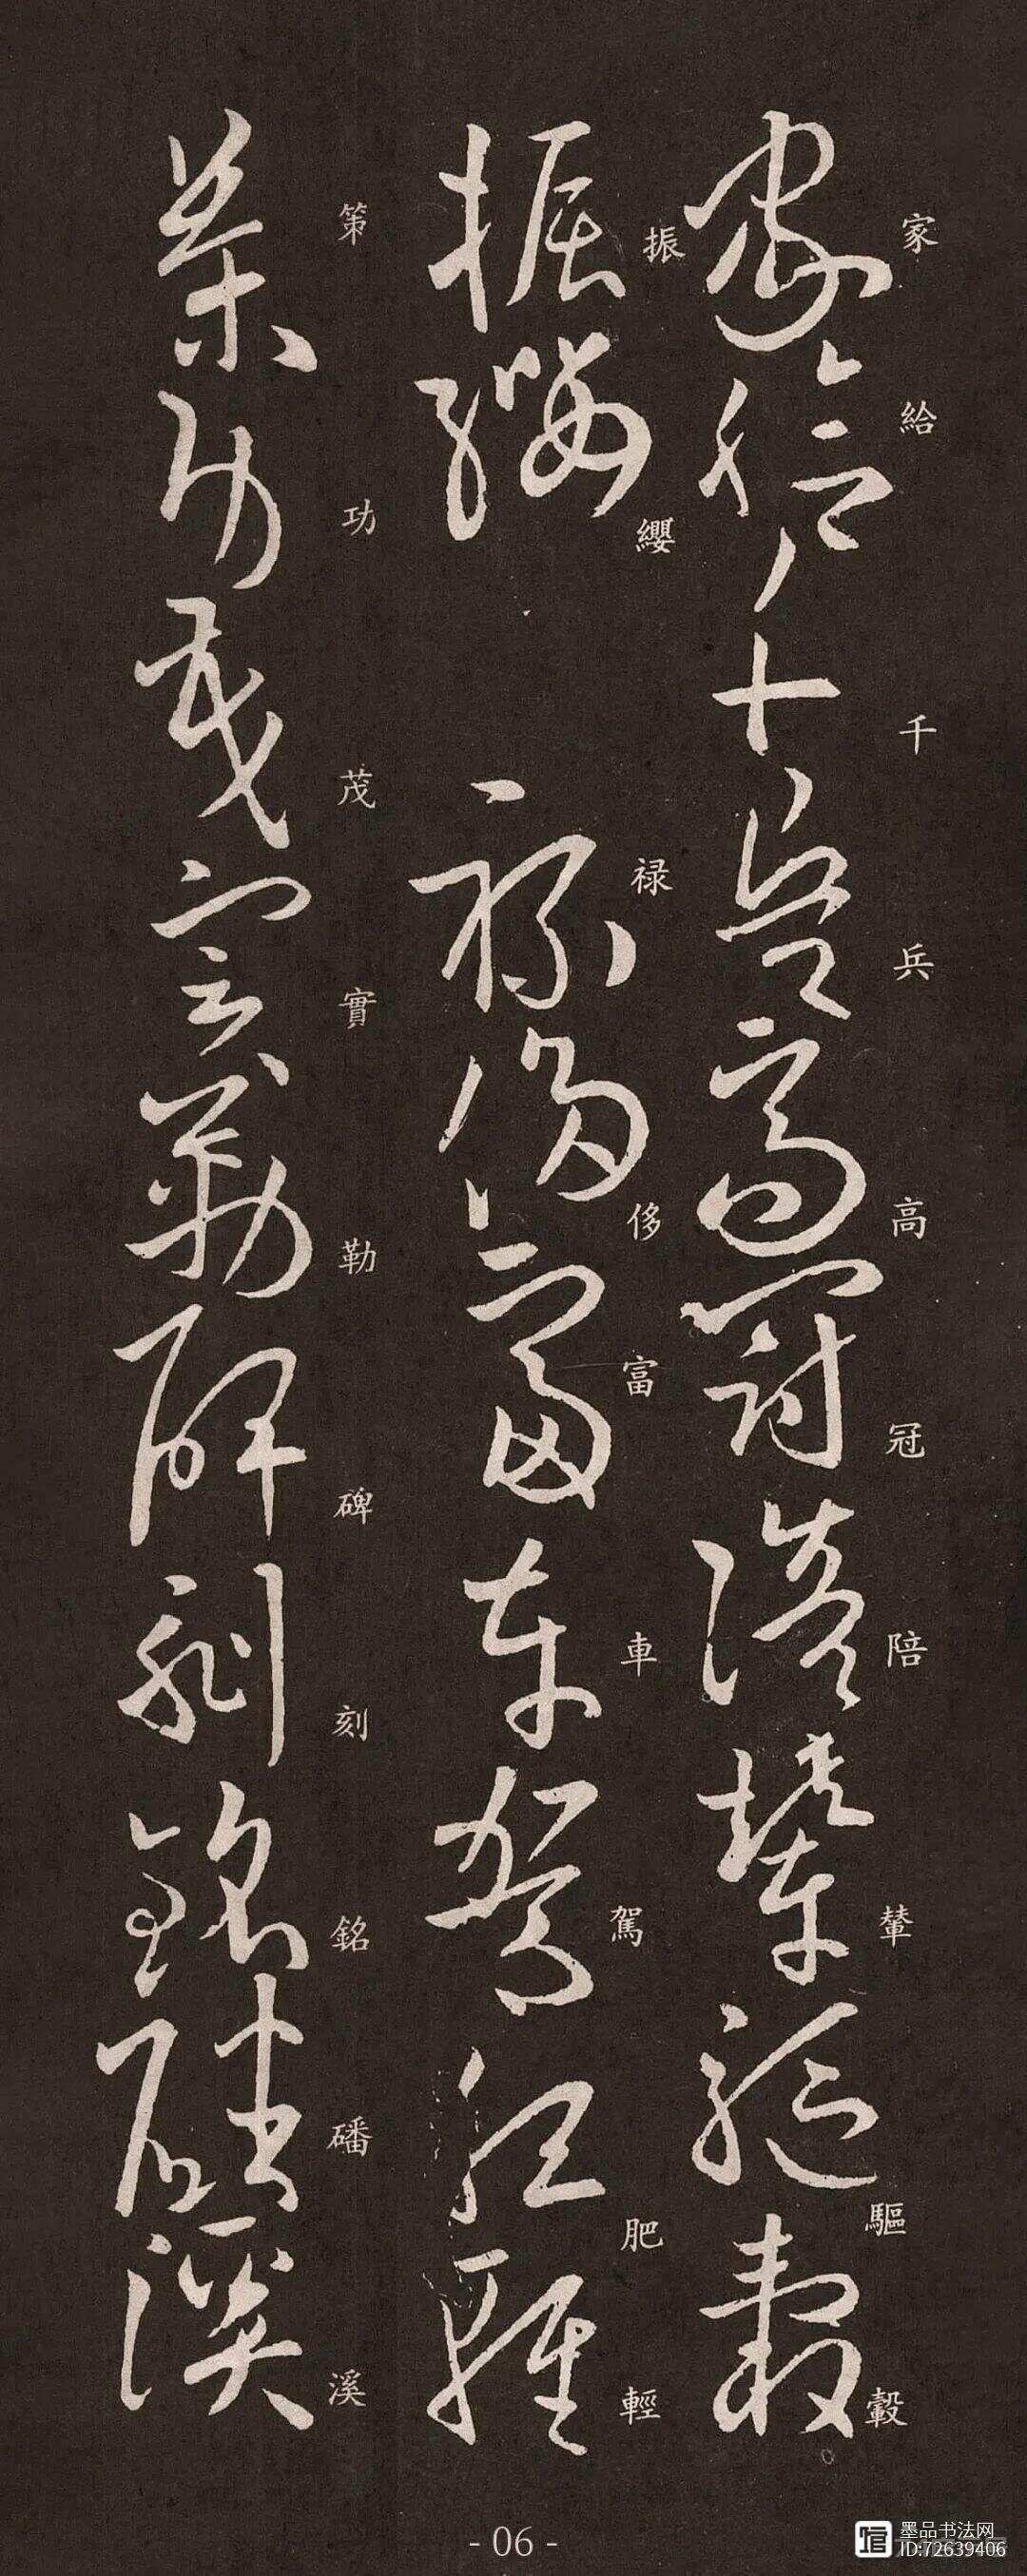 家給千兵高冠陪輦驅轂
振纓禄侈富車駕肥輕
策功茂實勒碑刻銘磻溪
- 06 -
墨品书法网
ID:72639406